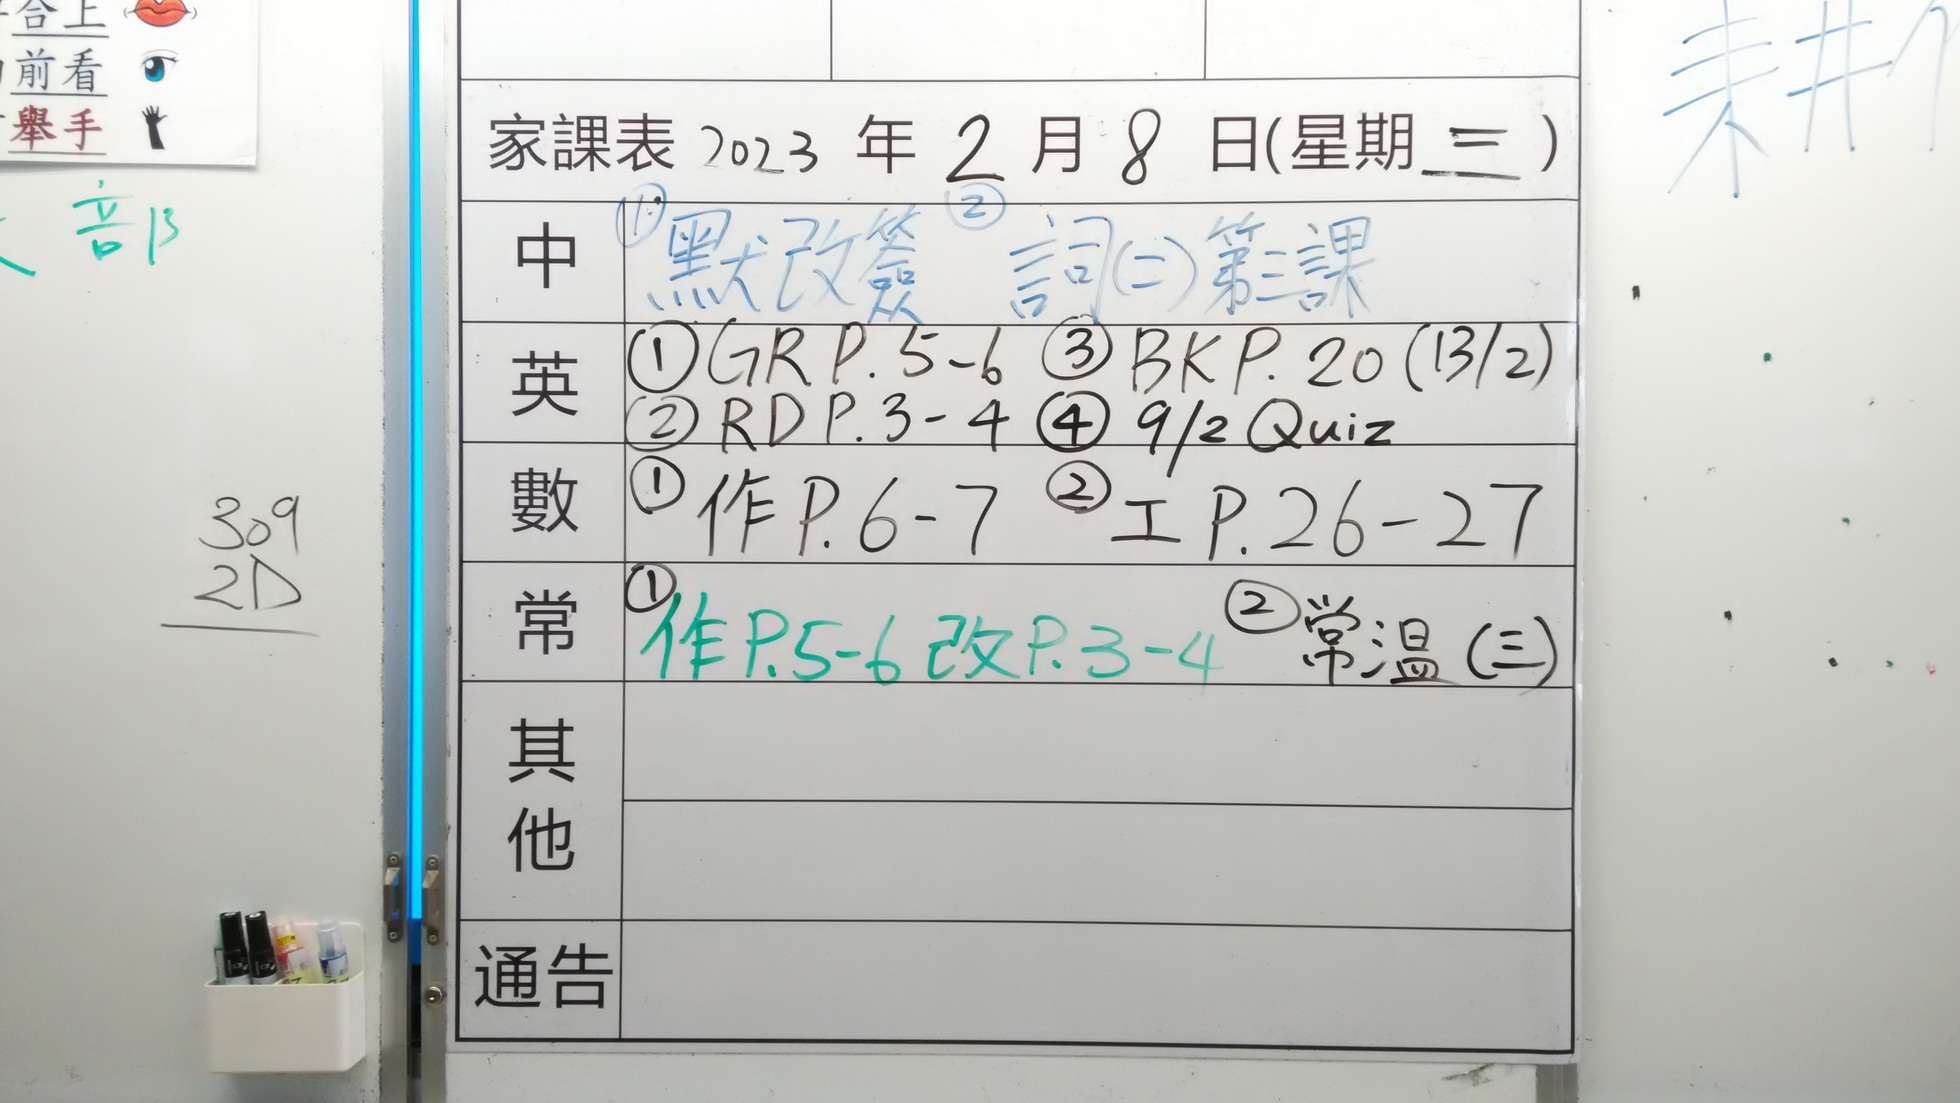 合上
前看
舉手
部
309
2D
家課表 2023 年 2 月 8 日(星期三)
中 ①默改簽 ②詞(二)第三課
英 ①GR P.5-6 ③BK P.20 (13/2)
②RD P.3-4 ④9/2 Quiz
數 ①作P.6-7 ②工P.26-27
常 ①作P.5-6 改P.3-4 ②常溫(三)
其他
通告
耕